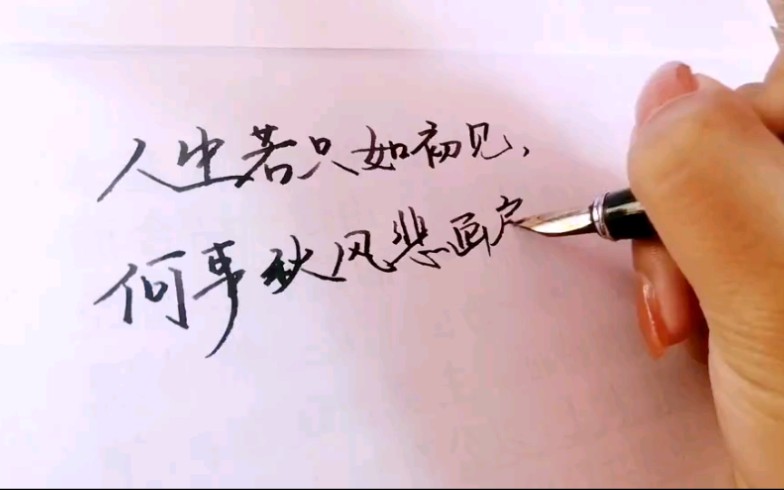 人生若只如初见，
何事秋风悲画